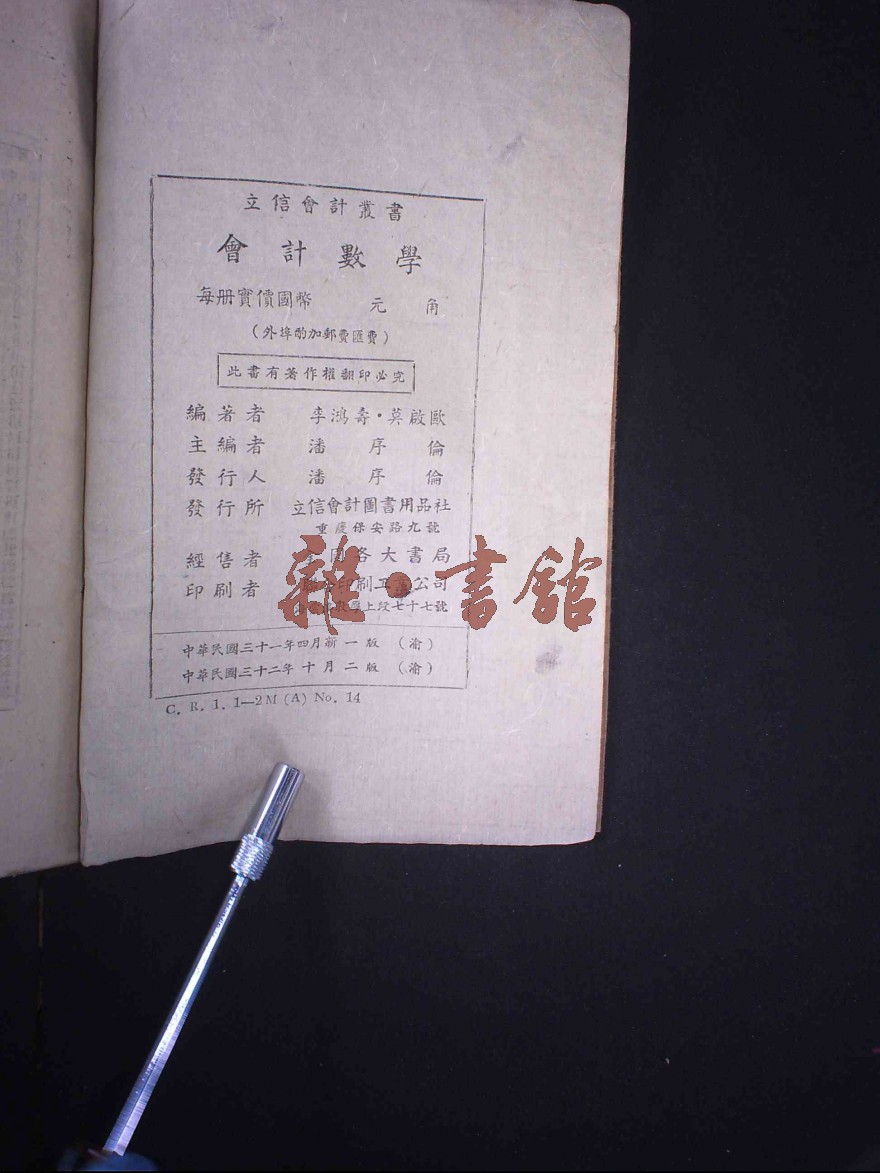 立信會計叢書
會計數學
每册實價國幣 元 角
（外埠酌加郵費匯費）
此書有著作權翻印必究
編著者 李鴻壽・莫啟歐
主編者 潘序倫
發行人 潘序倫
發行所 立信會計圖書用品社
重慶保安路九號
經售者 國各大書局
印刷者 印刷工業公司
上段七十七號
雜・書館
中華民國三十一年四月新一版（渝）
中華民國三十二年十月二版（渝）
C. R. 1. 1—2M (A) No. 14